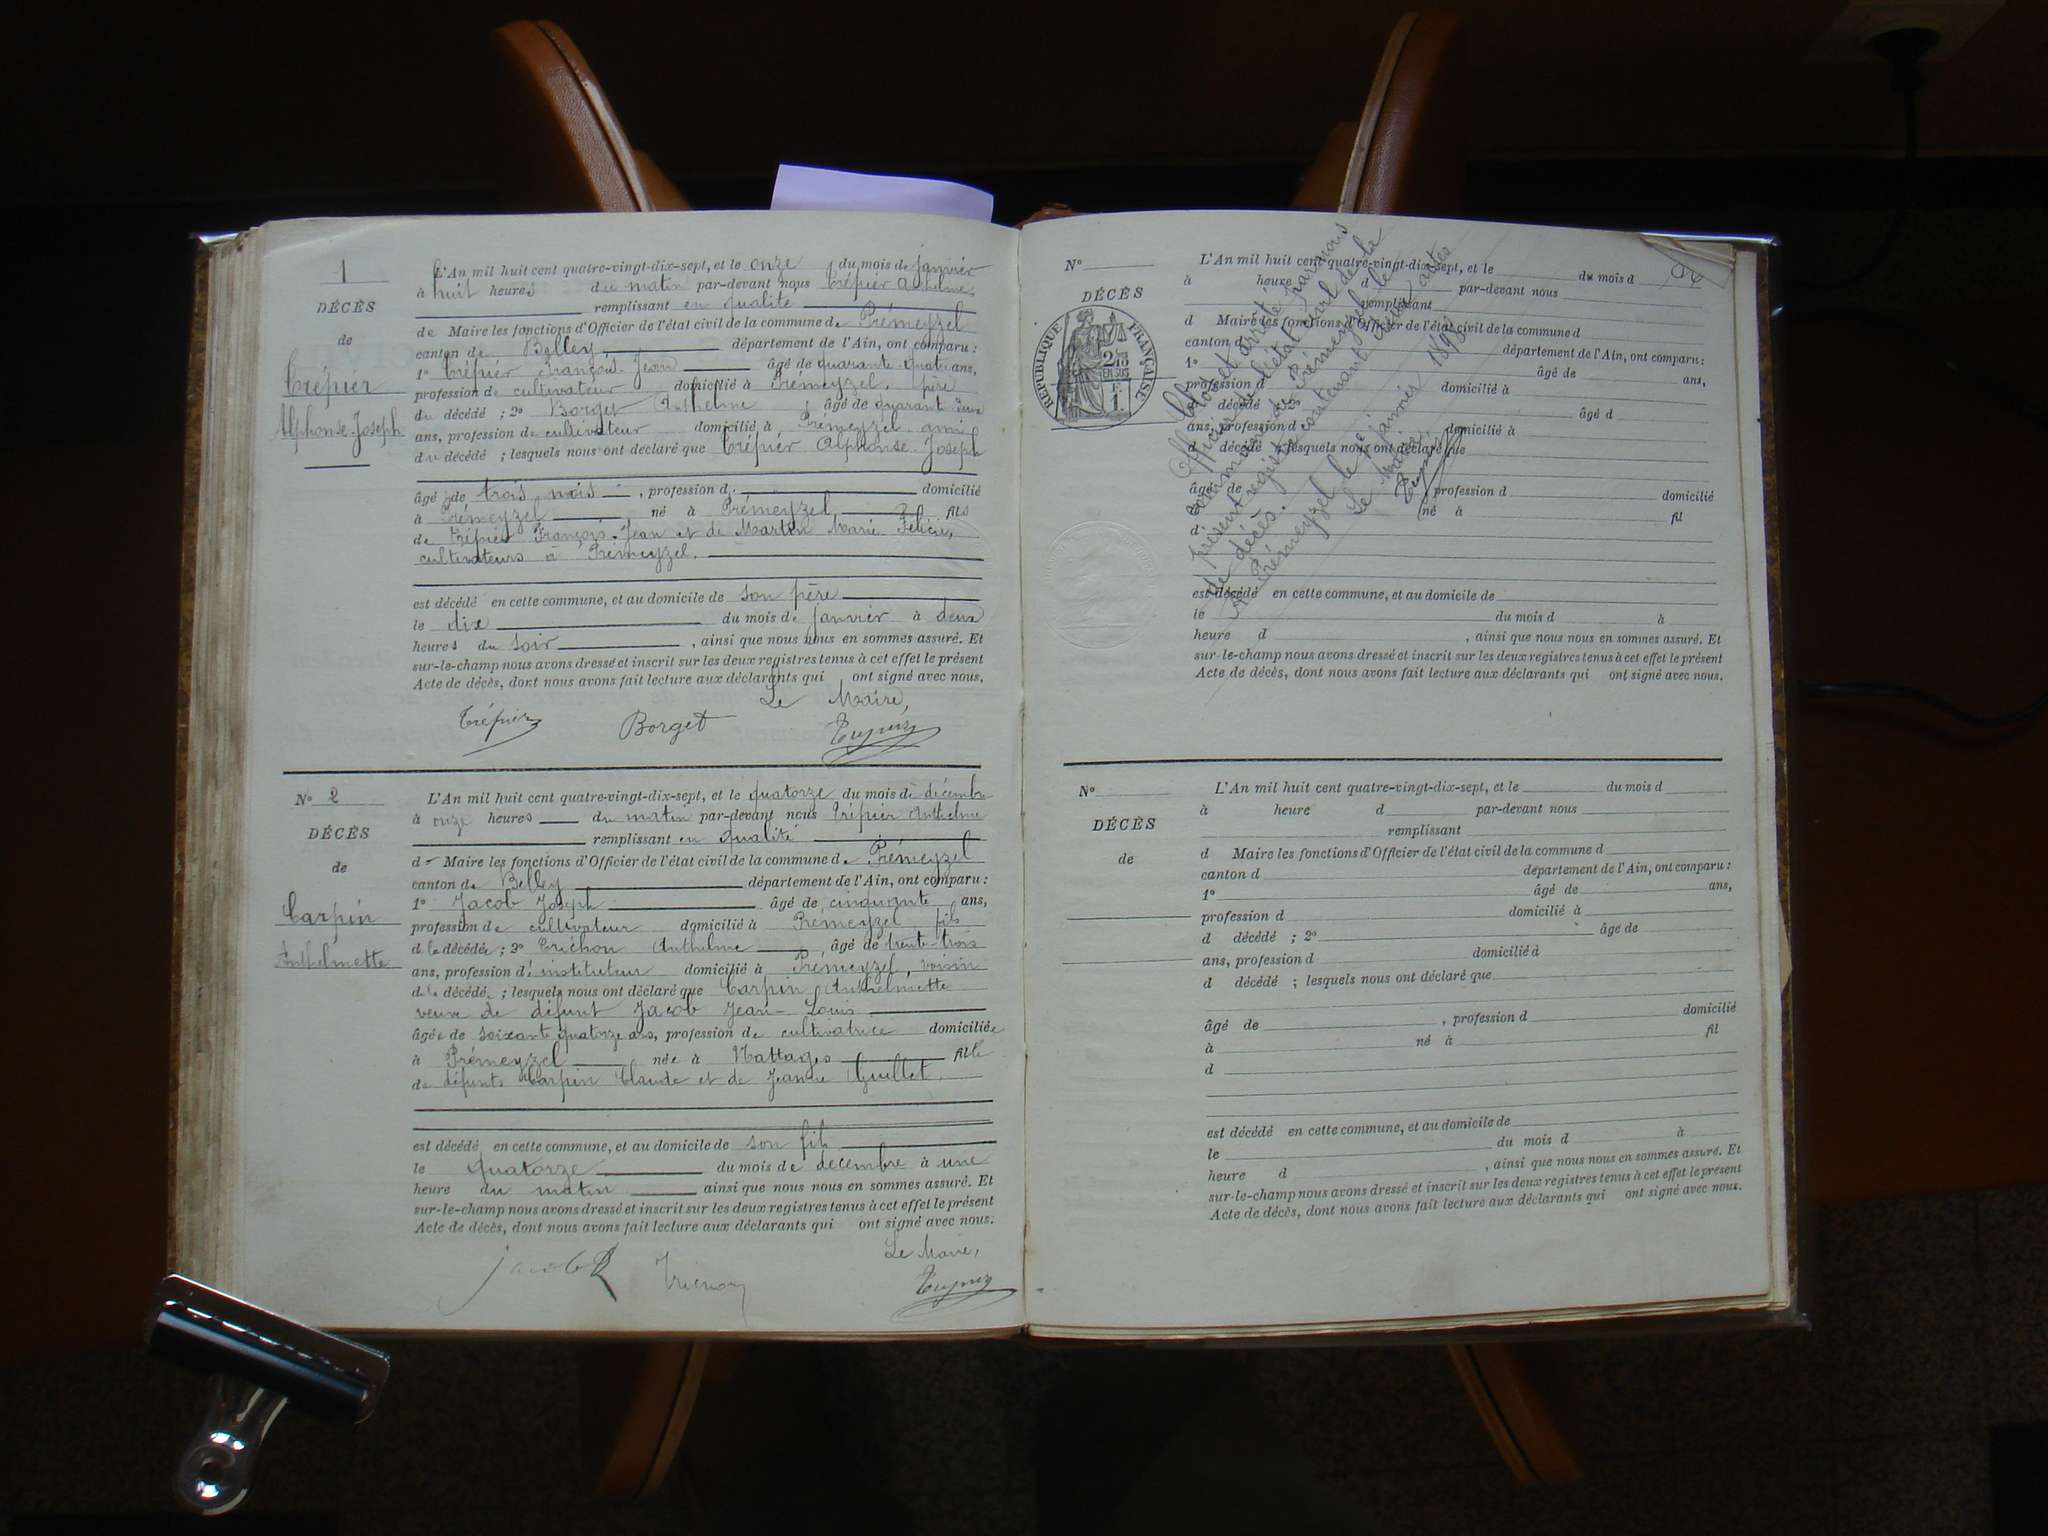 1
DÉCÈS
de
Trépier
Alphonse-Joseph
L'An mil huit cent quatre-vingt-dix-sept, et le onze du mois de janvier
à huit heures du matin par-devant nous Trépier Anthelme,
remplissant en qualité
de Maire les fonctions d'Officier de l'état civil de la commune de Prémeyzel
canton de Belley département de l'Ain, ont comparu :
1° Trépier François-Jean âgé de quarante-quatre ans,
profession de cultivateur domicilié à Prémeyzel, père
du décédé ; 2° Borget Anthelme, âgé de quarante deux
ans, profession de cultivateur domicilié à Prémeyzel ami
du décédé ; lesquels nous ont déclaré que Trépier Alphonse-Joseph
âgé de trois mois, profession d domicilié
à Prémeyzel né à Prémeyzel, fils
de Trépier François-Jean et de Martin Marie Félicie,
cultivateurs à Prémeyzel.
est décédé en cette commune, et au domicile de son père
le dix du mois de janvier à deux
heures du soir, ainsi que nous nous en sommes assuré. Et
sur-le-champ nous avons dressé et inscrit sur les deux registres tenus à cet effet le présent
Acte de décès, dont nous avons fait lecture aux déclarants qui ont signé avec nous.
Le Maire,
Trépier Borget
N° 2
DÉCÈS
de
Carpin
Anthelmette
L'An mil huit cent quatre-vingt-dix-sept, et le quatorze du mois de décembre
à onze heures du matin par-devant nous Trépier Anthelme
remplissant en qualité
de Maire les fonctions d'Officier de l'état civil de la commune de Prémeyzel
canton de Belley département de l'Ain, ont comparu :
1° Jacob Joseph âgé de cinquante ans,
profession de cultivateur domicilié à Prémeyzel fils
de la décédée ; 2° Trichon Anthelme, âgé de trente-trois
ans, profession d'instituteur domicilié à Prémeyzel, voisin
de la décédée ; lesquels nous ont déclaré que Carpin Anthelmette
veuve de défunt Jacob Jean-Louis
âgée de soixante quatorze ans, profession de cultivatrice domiciliée
à Prémeyzel née à Nattages fille
de défunts Carpin Claude et de Jeanne Guillet,
est décédé en cette commune, et au domicile de son fils
le quatorze du mois de décembre à une
heure du matin ainsi que nous nous en sommes assuré. Et
sur-le-champ nous avons dressé et inscrit sur les deux registres tenus à cet effet le présent
Acte de décès, dont nous avons fait lecture aux déclarants qui ont signé avec nous.
Le Maire,
Jacob Trichon
N°
DÉCÈS
RÉPUBLIQUE FRANÇAISE
L'An mil huit cent quatre-vingt-dix-sept, et le du mois d
à heure d par-devant nous
remplissant
d Maire les fonctions d'Officier de l'état civil de la commune d
canton d département de l'Ain, ont comparu :
1° âgé de ans,
profession d domicilié à
d décédé ; 2° âgé d
ans, profession d domicilié à
d décédé ; lesquels nous ont déclaré que
âgé de , profession d domicilié
à né à fil
d
est décédé en cette commune, et au domicile de
le du mois d à
heure d , ainsi que nous nous en sommes assuré. Et
sur-le-champ nous avons dressé et inscrit sur les deux registres tenus à cet effet le présent
Acte de décès, dont nous avons fait lecture aux déclarants qui ont signé avec nous.
et arrêté par nous
Officier de l'état civil de la
commune de Prémeyzel le
présent registre contenant actes
de décès.
A Prémeyzel le janvier 1898
Le Maire,
N°
DÉCÈS
de
L'An mil huit cent quatre-vingt-dix-sept, et le du mois d
à heure d par-devant nous
remplissant
d Maire les fonctions d'Officier de l'état civil de la commune d
canton d département de l'Ain, ont comparu :
1° âgé de ans,
profession d domicilié à
d décédé ; 2° âgé de
ans, profession d domicilié à
d décédé ; lesquels nous ont déclaré que
âgé de , profession d domicilié
à né à fil
d
est décédé en cette commune, et au domicile de
le du mois d à
heure d , ainsi que nous nous en sommes assuré. Et
sur-le-champ nous avons dressé et inscrit sur les deux registres tenus à cet effet le présent
Acte de décès, dont nous avons fait lecture aux déclarants qui ont signé avec nous.